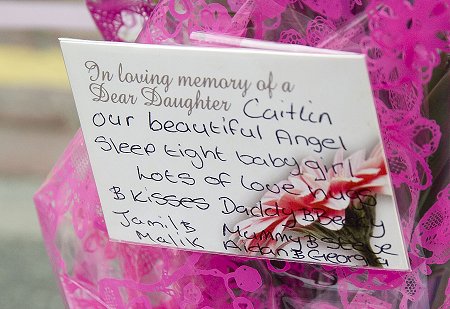 In loving memory of a
Dear Daughter Caitlin
our beautiful Angel
sleep tight baby girl
Lots of love hugs
& Kisses Daddy &
Jamil & Mummy &
Malik & Georgia